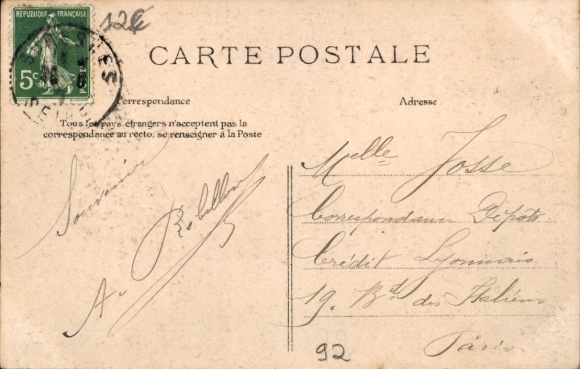 12€
REPUBLIQUE FRANÇAISE
5c
CARTE POSTALE
Correspondance
Tous les pays étrangers n'acceptent pas la
correspondance au recto, se renseigner à la Poste
Souvenir
A. Rebillon
Adresse
Melle Josse
Correspondance Dépôts
Crédit Lyonnais
19. Bd des Italiens
Paris
92